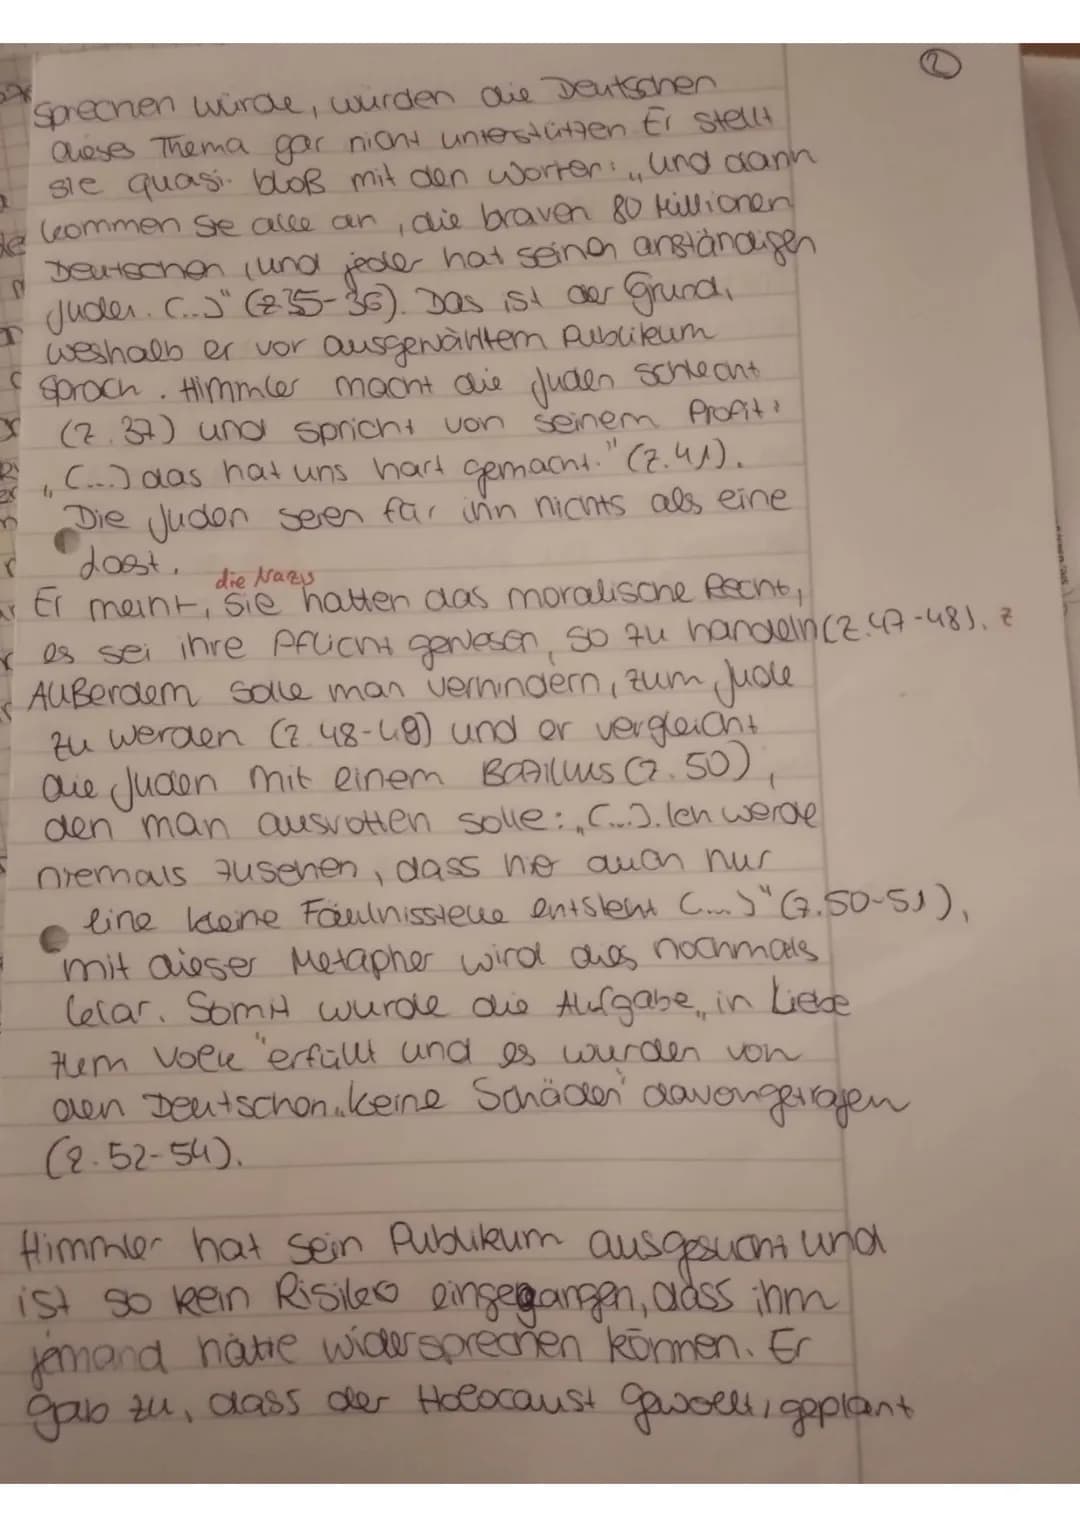 2
sprechen würde, würden die Deutschen
dieses Thema gar nicht unterstützen. Er stellt
sie quasi bloß mit den Worten: „und dann
kommen sie alle an, die braven 80 Millionen
Deutschen, und jeder hat seinen anständigen
Juden. (...)" (Z.35-36). Das ist der Grund,
weshalb er vor ausgewähltem Publikum
sprach. Himmler macht die Juden schlecht
(Z.37) und spricht von seinem Profit:
„(...) das hat uns hart gemacht." (Z.41).
Die Juden seien für ihn nichts als eine
Last.
die Nazis
Er meint, sie hätten das moralische Recht,
es sei ihre Pflicht gewesen, so zu handeln (Z.47-48). z
Außerdem solle man verhindern, zum Jude
zu werden (Z.48-49) und er vergleicht
die Juden mit einem Bazillus (Z.50),
den man ausrotten solle: „(...). Ich werde
niemals zusehen, dass hie auch nur
eine kleine Fäulnisstelle entsteht (...)" (Z.50-51),
mit dieser Metapher wird dies nochmals
klar. Somit wurde die Aufgabe „in Liebe
zum Volk" erfüllt und es wurden von
den Deutschen „keine Schäden" davongetragen
(Z.52-54).
Himmler hat sein Publikum ausgesucht und
ist so kein Risiko eingegangen, dass ihm
jemand hätte widersprechen können. Er
gab zu, dass der Holocaust gewollt, geplant